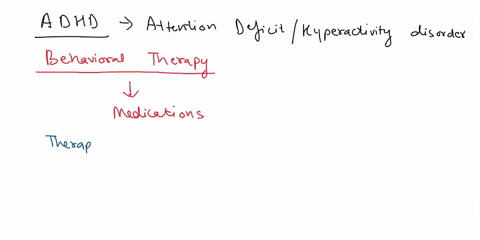 ADHD → Attention Deficit/Hyperactivity disorder
Behavioral Therapy
↓
Medications
Therap